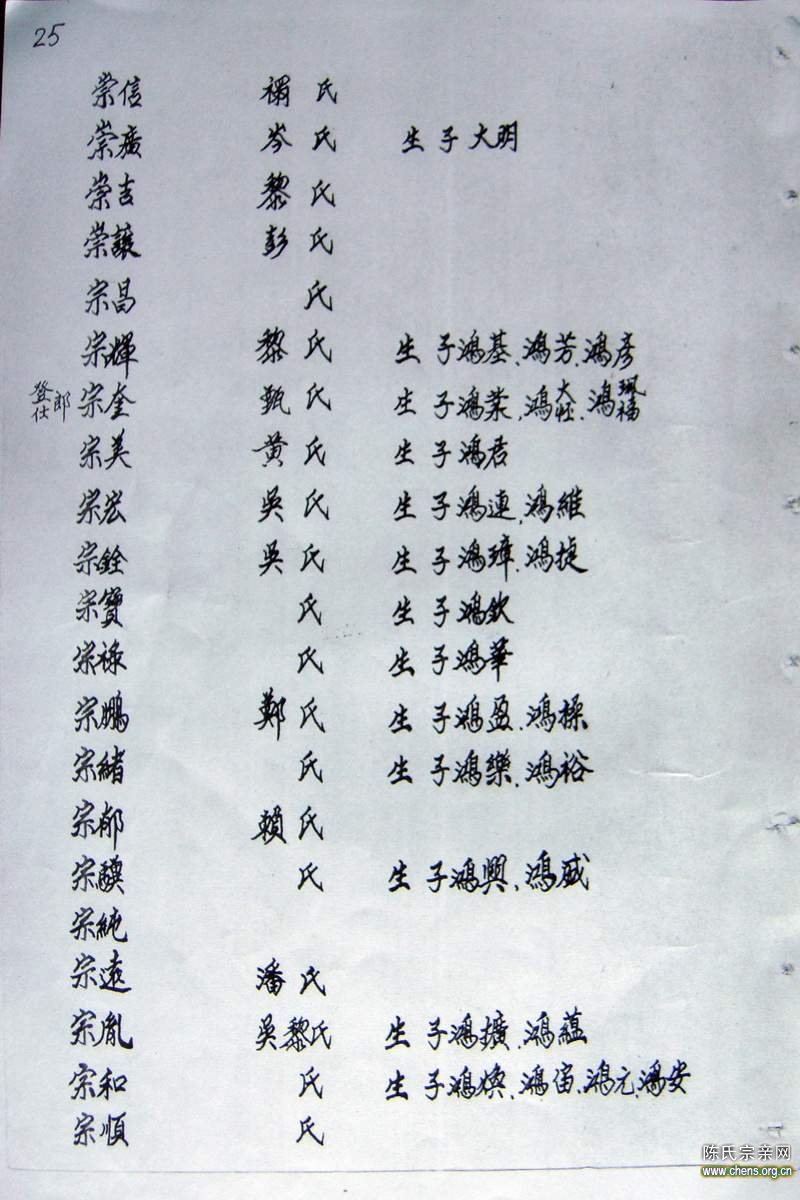 25
崇信 禤氏
崇廣 岑氏 生子大明
崇吉 黎氏
崇讓 彭氏
宗昌 氏
宗輝 黎氏 生子鴻基、鴻芳、鴻彥
登仕郎 宗奎 甄氏 生子鴻業、鴻大、鴻珮福
宗美 黄氏 生子鴻君
宗宏 吳氏 生子鴻連、鴻維
宗銓 吳氏 生子鴻璋、鴻捷
宗寶 氏 生子鴻欽
宗祿 氏 生子鴻華
宗鵬 鄭氏 生子鴻盈、鴻操
宗緒 氏 生子鴻樂、鴻裕
宗郁 賴氏
宗 氏 生子鴻興、鴻威
宗純
宗遠 潘氏
宗胤 吳黎氏 生子鴻擴、鴻蘊
宗和 氏 生子鴻煥、鴻宙、鴻元、鴻安
宗順 氏
陈氏宗亲网
www.chens.org.cn